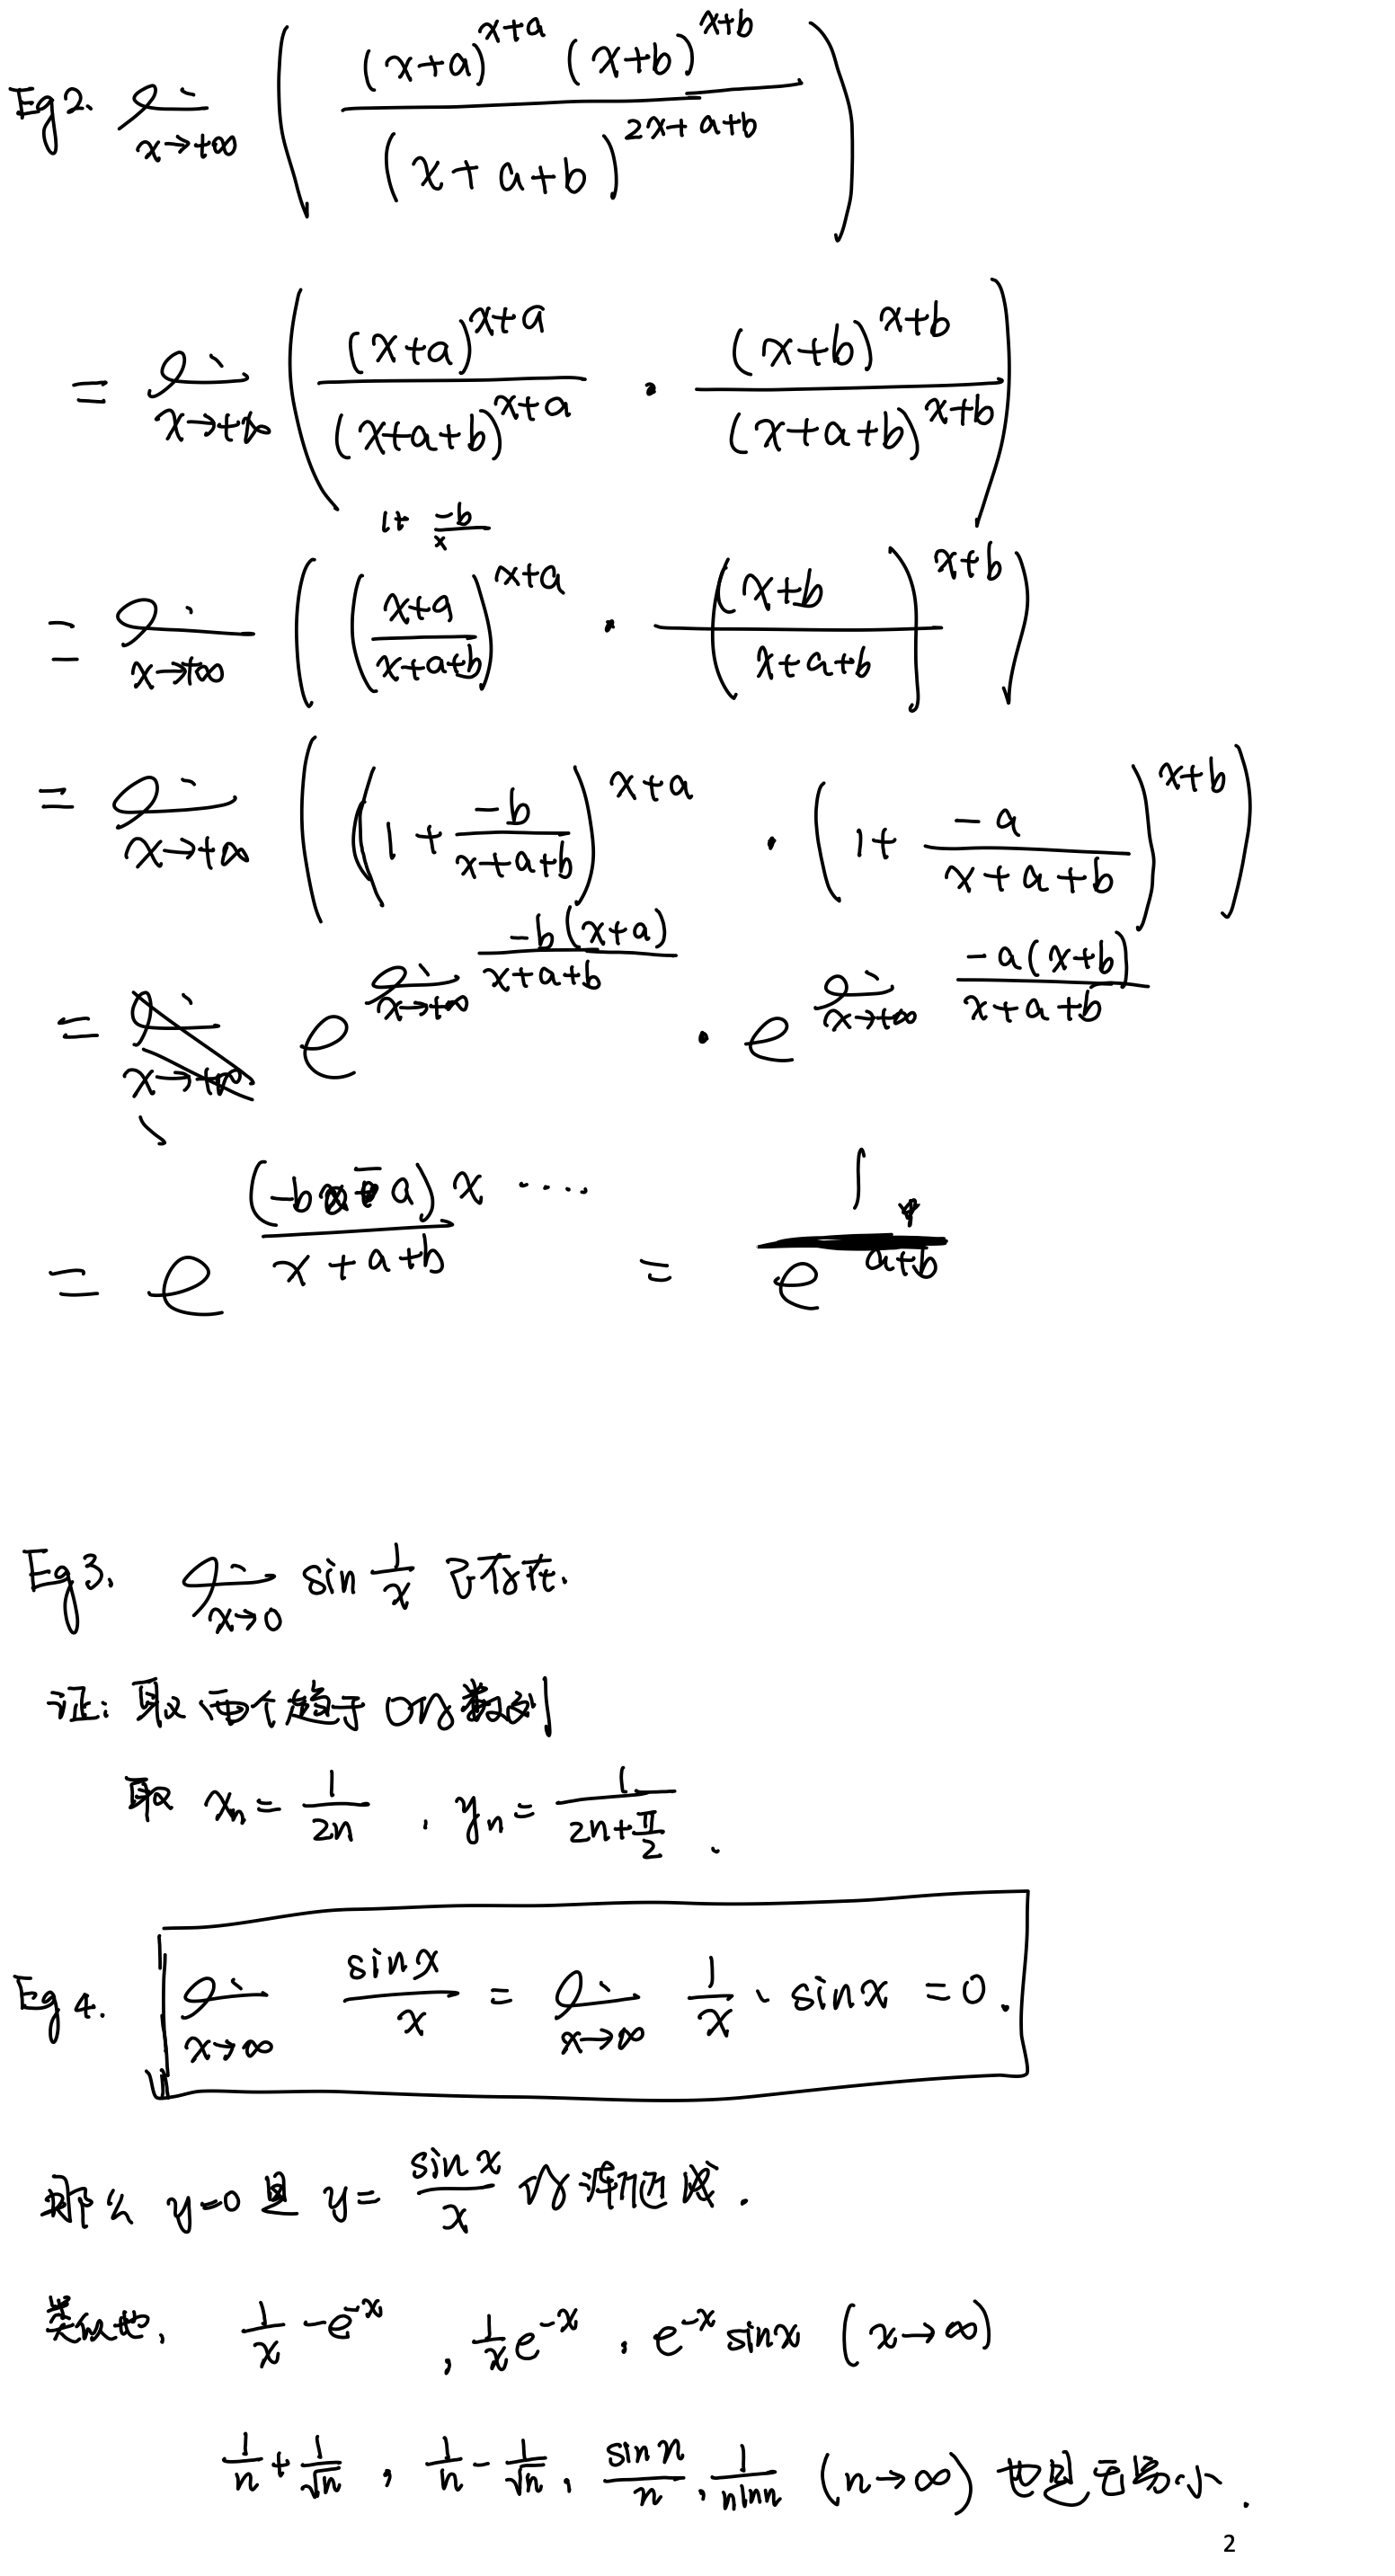 Eg2. lim x→+∞ ( (x+a)^{x+a} (x+b)^{x+b} / (x+a+b)^{2x+a+b} )
= lim x→+∞ ( (x+a)^{x+a} / (x+a+b)^{x+a} · (x+b)^{x+b} / (x+a+b)^{x+b} )
1+ -b/x
= lim x→+∞ ( ( (x+a)/(x+a+b) )^{x+a} · ( (x+b)/(x+a+b) )^{x+b} )
= lim x→+∞ ( ( 1 + -b/(x+a+b) )^{x+a} · ( 1+ -a/(x+a+b) )^{x+b} )
= e^{lim x→+∞ -b(x+a)/(x+a+b)} · e^{lim x→+∞ -a(x+b)/(x+a+b)}
= e^{(-b-a)x ····/(x+a+b)} = 1/e^{a+b}
Eg3. lim x→0 sin 1/x 不存在.
证: 取两个趋于0的数列
取 x_n = 1/2n , y_n = 1/(2n+π/2) .
Eg4. lim x→∞ sinx/x = lim x→∞ 1/x · sinx = 0.
那么 y=0 是 y= sinx/x 的渐近线.
类似地, 1/x - e^{-x} , 1/x e^{-x} , e^{-x} sinx (x→∞)
1/n + 1/√n , 1/n - 1/√n , sin n/n , 1/(n ln n) (n→∞) 也是无穷小.
2